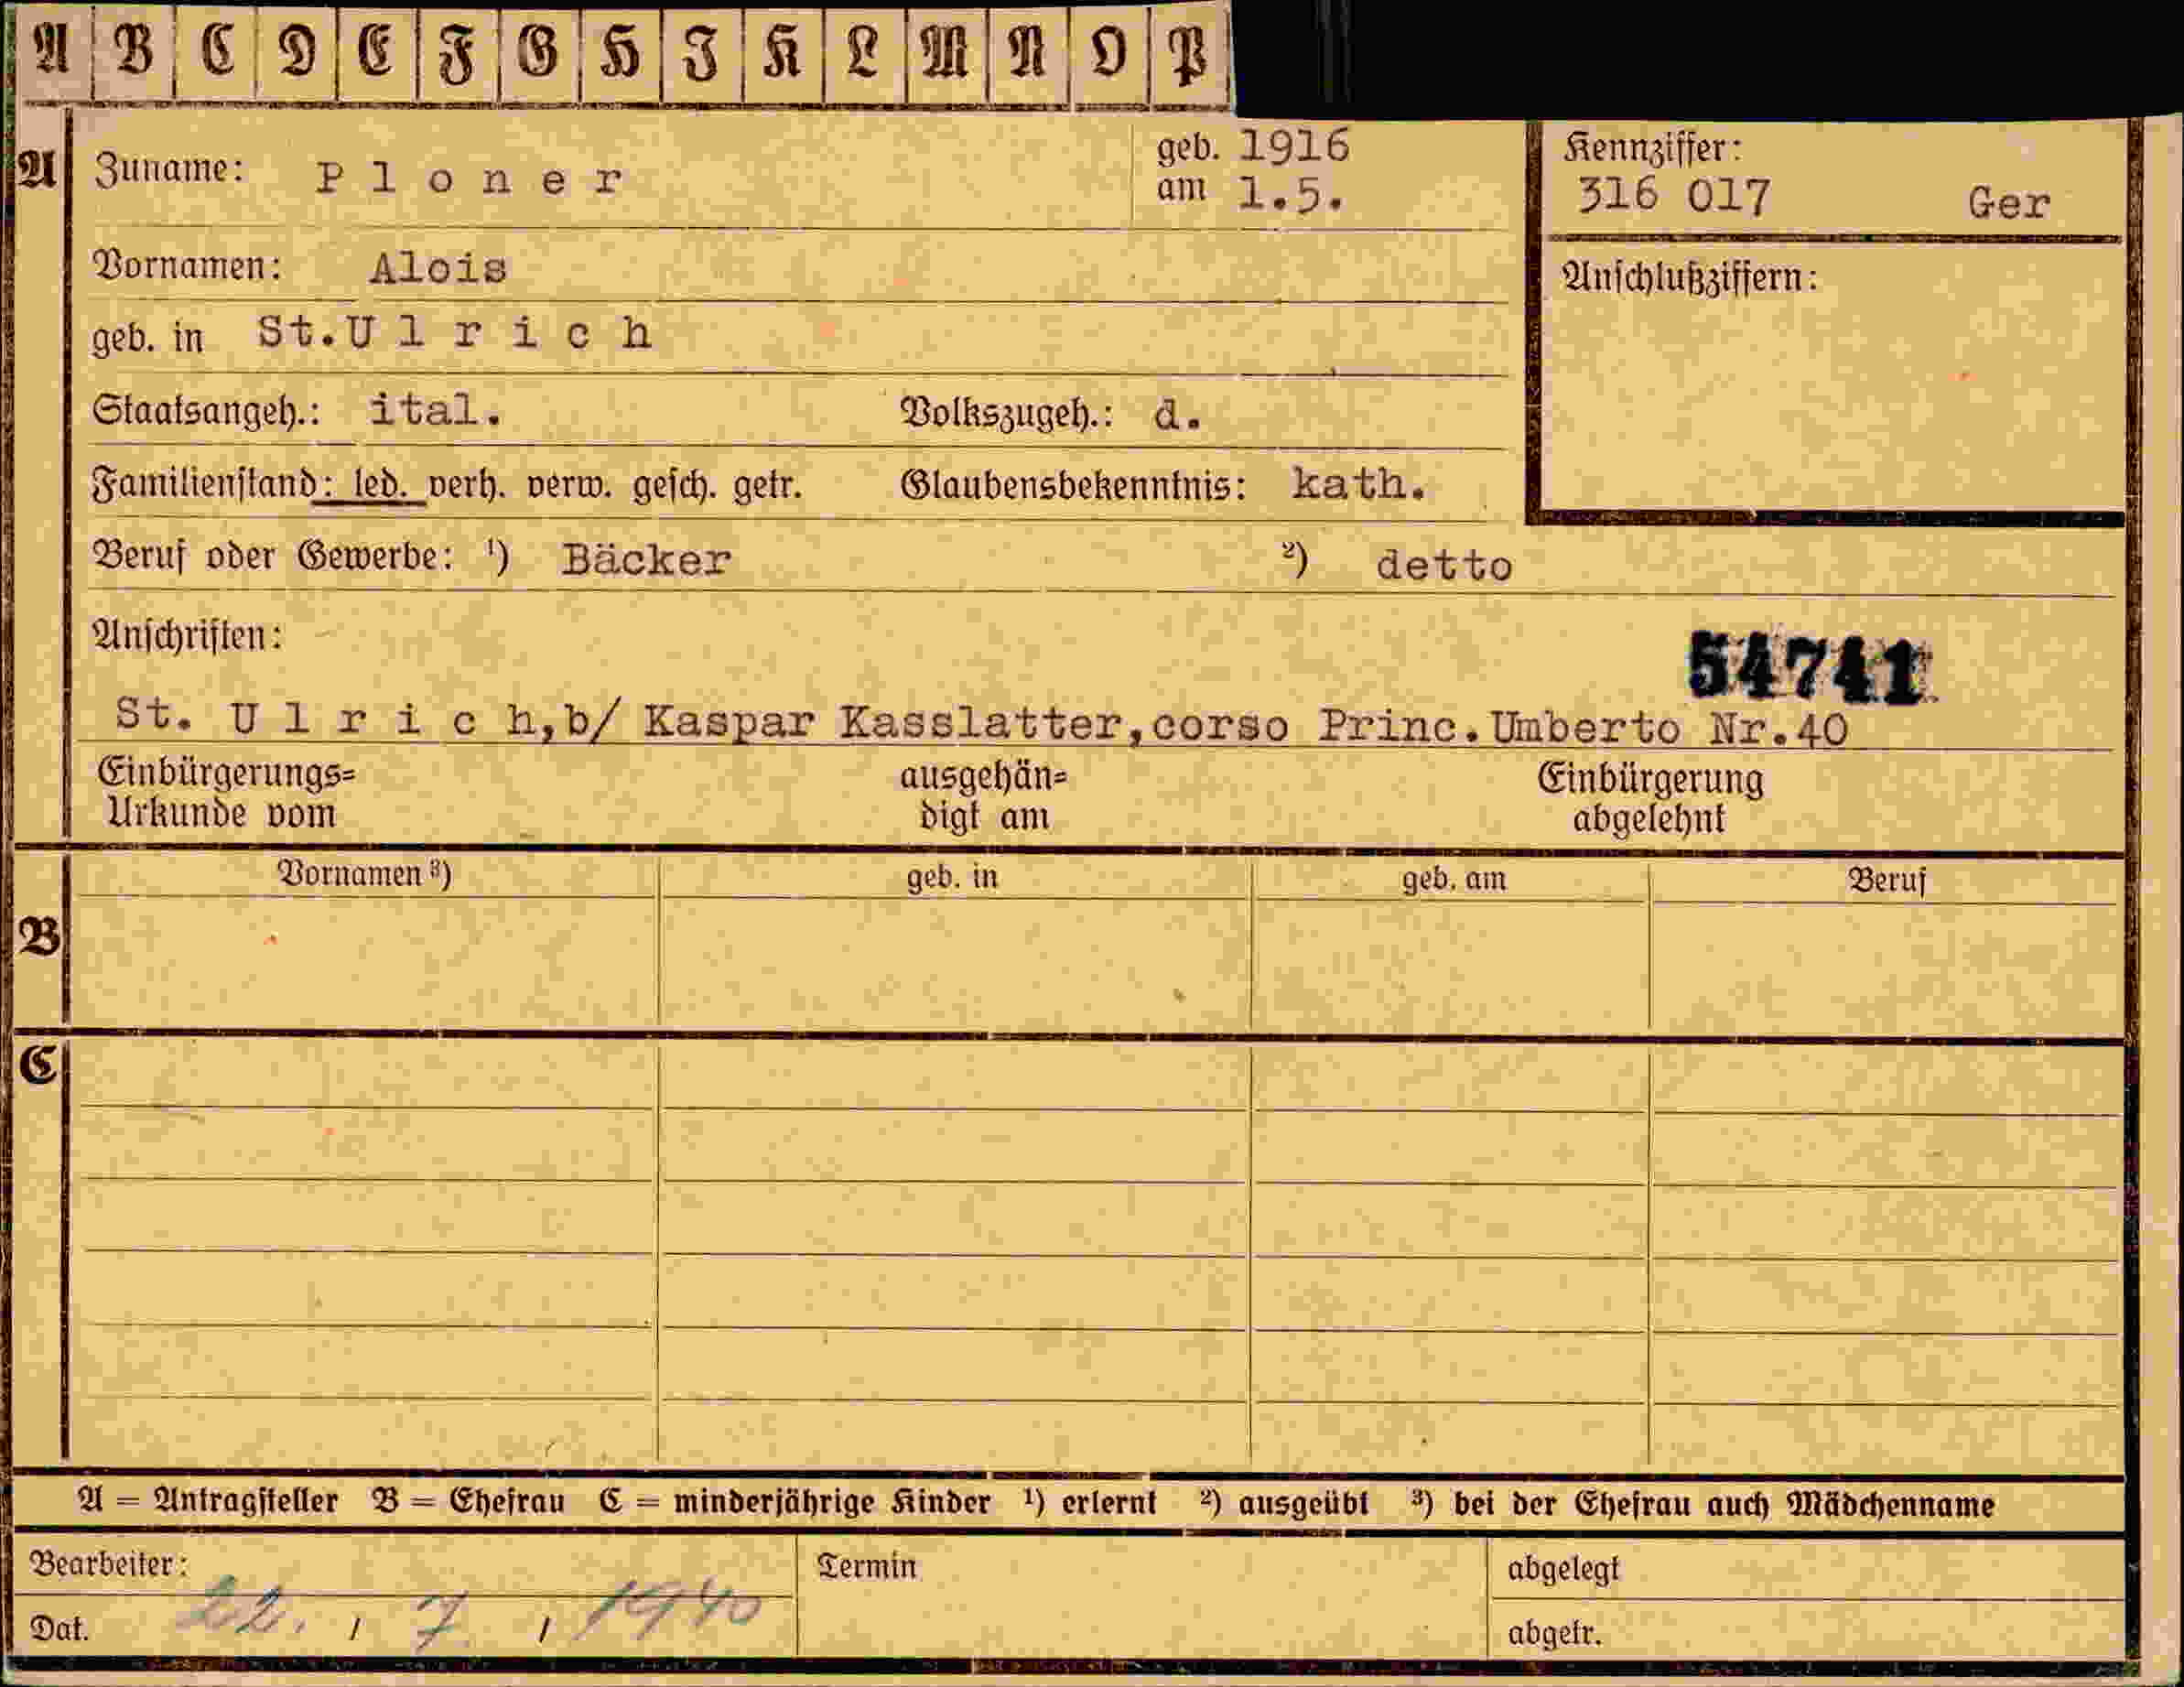 A B C D E F G H I K L M N O P
A Zuname: Ploner geb. 1916 am 1.5. Kennziffer: 316 017 Ger
Vornamen: Alois Anschlußziffern:
geb. in St.Ulrich
Staatsangeh.: ital. Volkszugeh.: d.
Familienstand: led. verh. verw. gesch. getr. Glaubensbekenntnis: kath.
Beruf oder Gewerbe: ¹) Bäcker ²) detto
Anschriften: 54741
St. Ulrich,b/ Kaspar Kasslatter,corso Princ.Umberto Nr.40
Einbürgerungs= ausgehän= Einbürgerung
Urkunde vom digt am abgelehnt
Vornamen ³) geb. in geb. am Beruf
B
C
A = Antragsteller B = Ehefrau C = minderjährige Kinder ¹) erlernt ²) ausgeübt ³) bei der Ehefrau auch Mädchenname
Bearbeiter: Termin abgelegt
Dat. 22. / 7 / 1940 abgetr.